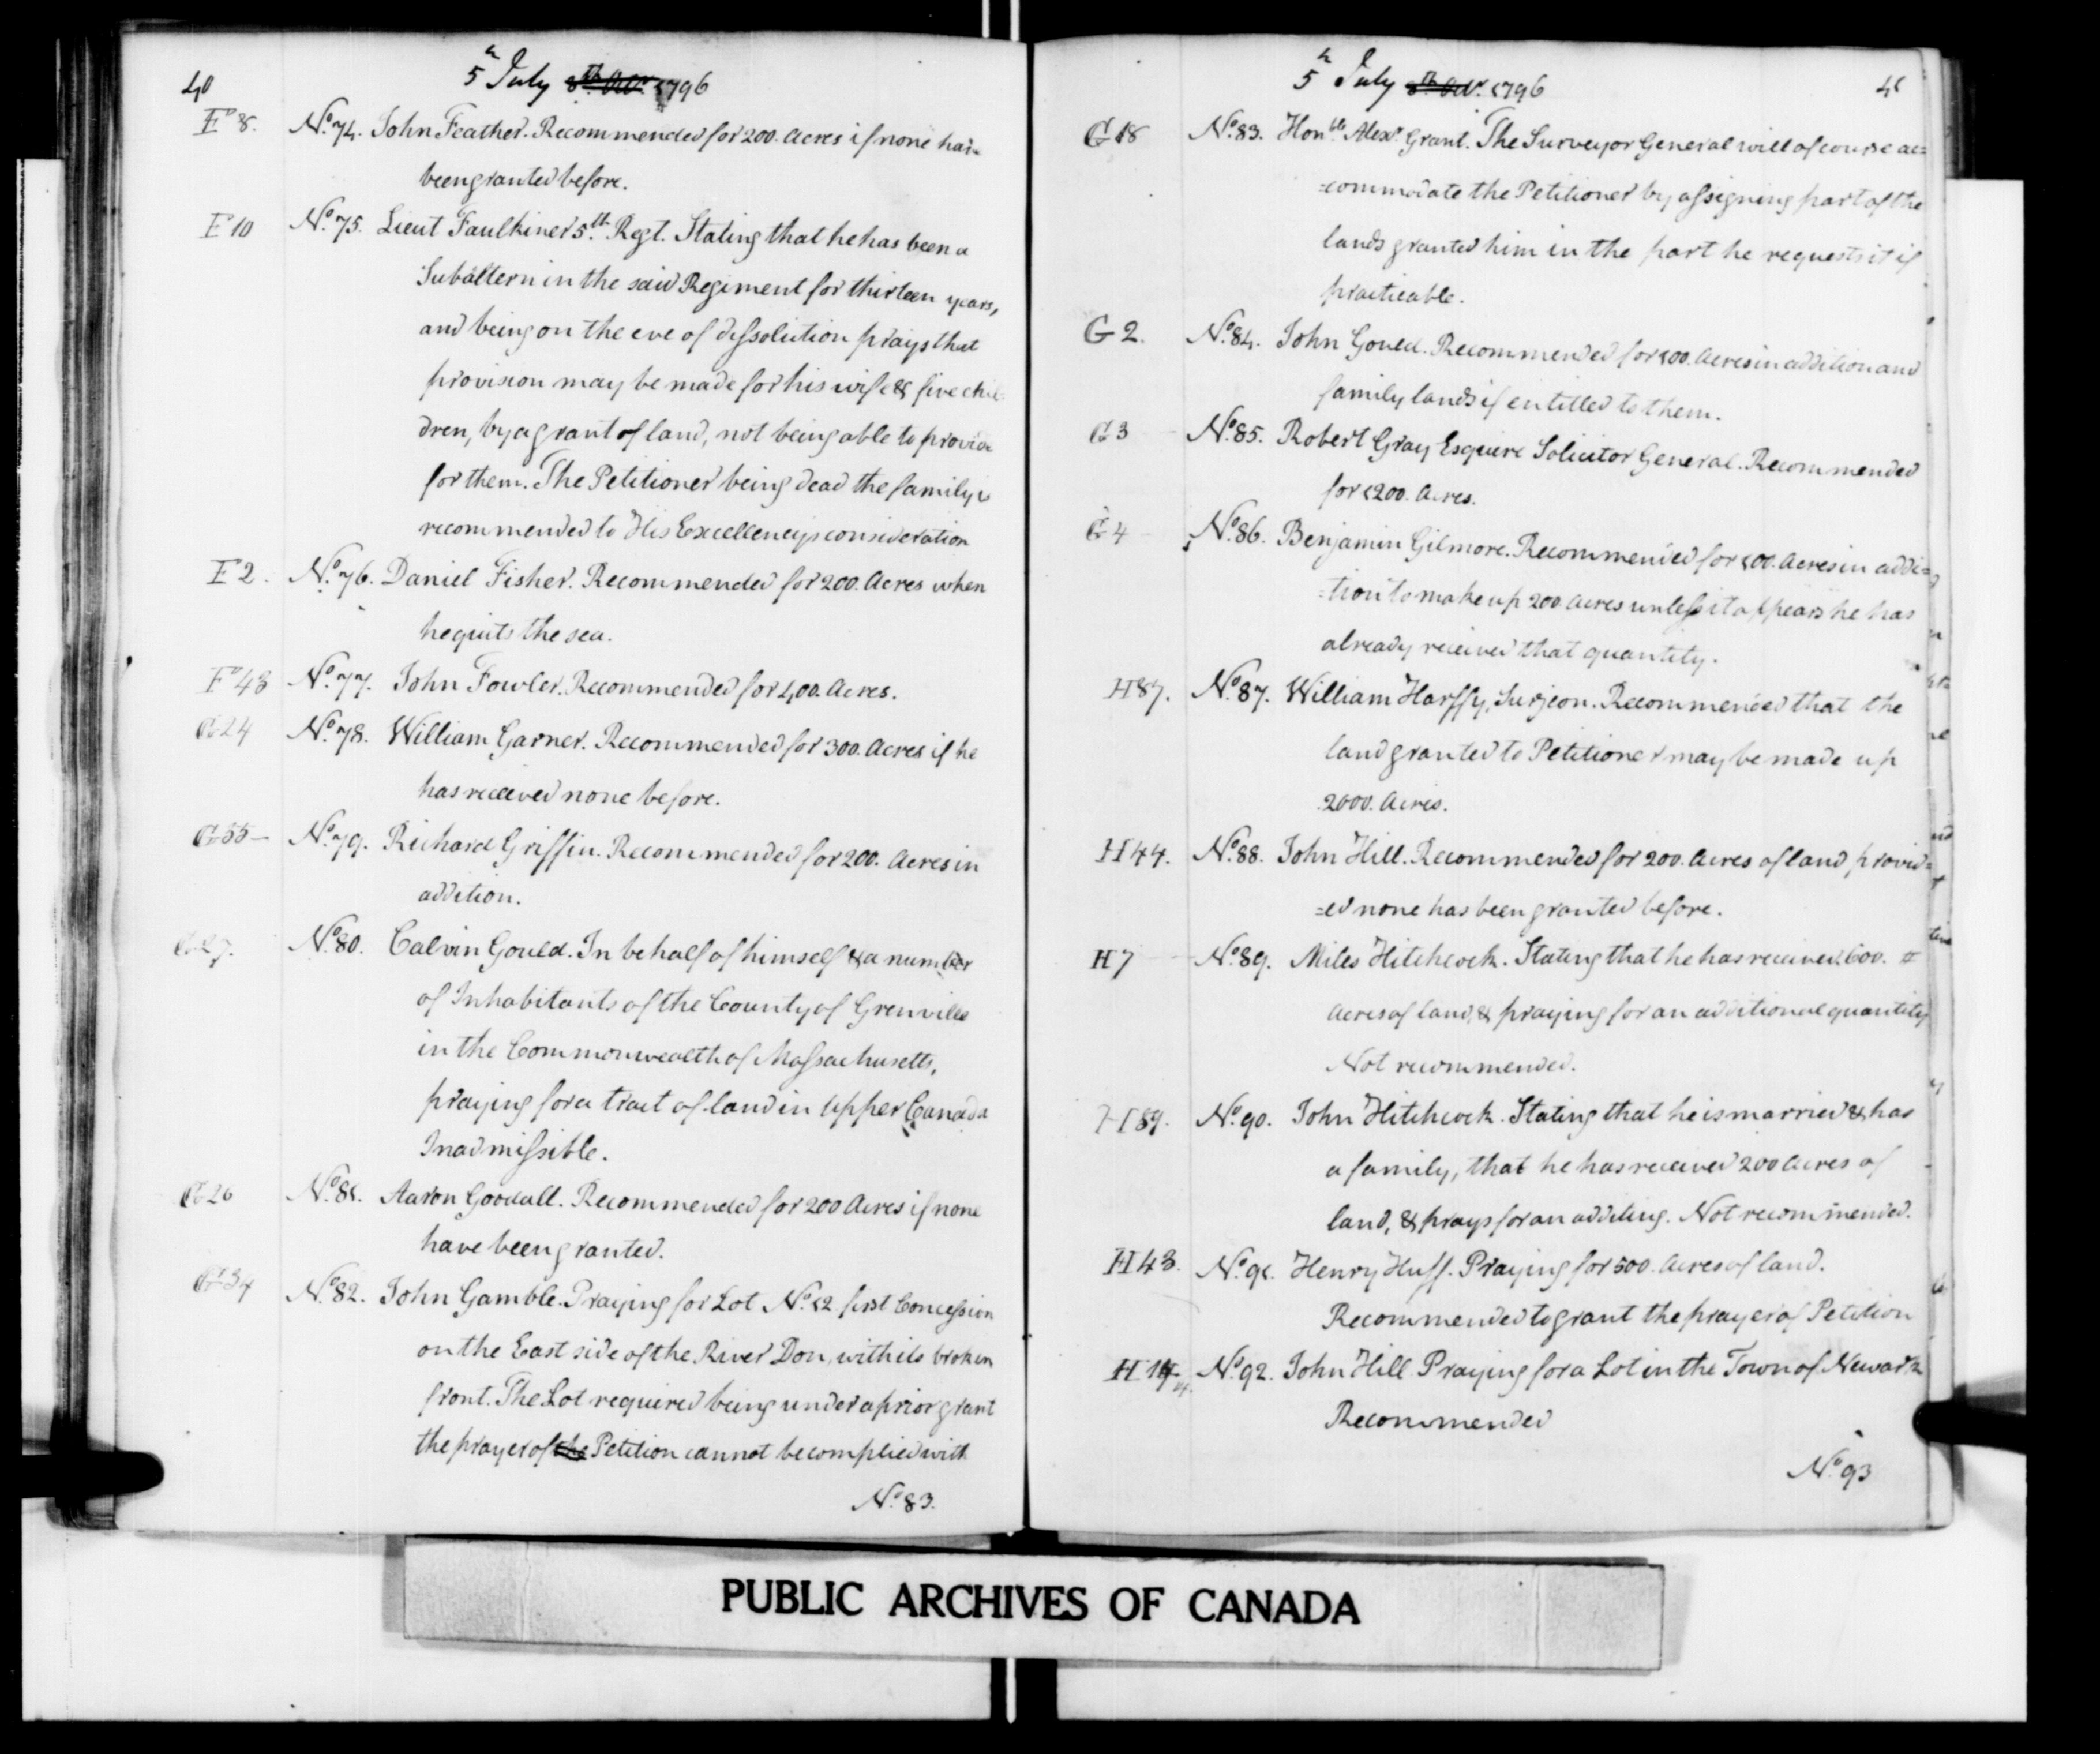 40
5th July 8th Octr. 1796
F 8. No. 74. John Feather. Recommended for 200. Acres if none has
been granted before.
F 10 No. 75. Lieut Faulkiner 5.th Regt. Stating that he has been a
Subaltern in the said Regiment for thirteen years,
and being on the eve of dissolution prays that
provision may be made for his wife & five chil=
dren, by a grant of land, not being able to provide
for them. The Petitioner being dead the family is
recommended to His Excellencys consideration
F 2. No. 76. Daniel Fisher. Recommended for 200. Acres when
he quits the sea.
F 43 No. 77. John Fowler. Recommended for 400. Acres.
G 24 No. 78. William Garner. Recommended for 300. Acres if he
has received none before.
G 55 — No. 79. Richard Griffin. Recommended for 200. Acres in
addition.
G 27. No. 80. Calvin Gould. In behalf of himself & a number
of Inhabitants of the County of Grenville
in the Commonwealth of Massachusetts,
praying for a tract of land in Upper Canada
Inadmissible.
G 26 No. 81. Aaron Goodall. Recommended for 200 Acres if none
have been granted.
G 34 No. 82. John Gamble. Praying for Lot No. 12 first Concession
on the East side of the River Don, with its broken
front. The Lot required being under a prior grant
the prayer of the Petition cannot be complied with
No. 83.
5th July 8th Octr. 1796
41
G 18 No. 83. Honble. Alexr. Grant. The Surveyor General will of course ac=
=commodate the Petitioner by assigning part of the
lands granted him in the part he requests it if
practicable.
G 2. No. 84. John Gould. Recommended for 100. Acres in addition and
family lands if entitled to them.
G 3 No. 85. Robert Gray Esquire Solicitor General. Recommended
for 1200. Acres.
G 4 No. 86. Benjamin Gilmore. Recommended for 100. Acres in addi=
=tion to make up 200 Acres unless it appears he has
already received that quantity.
H 87. No. 87. William Harffy, Surjeon. Recommended that the
land granted to Petitioner may be made up
2000. Acres.
H 44. No. 88. John Hill. Recommended for 200. Acres of land provid=
=ed none has been granted before.
H 7 No. 89. Miles Hitchcock. Stating that he has received 600.
Acres of land, & praying for an additional quantity
Not recommended.
H 89. No. 90. John Hitchcock. Stating that he is married & has
a family, that he has received 200 Acres of
land, & prays for an additing. Not recommended.
H 43. No. 91. Henry Huff. Praying for 500. Acres of land.
Recommended to grant the prayer of Petition
H 14 No. 92. John Hill Praying for a Lot in the Town of Newark
Recommended
No. 93
PUBLIC ARCHIVES OF CANADA